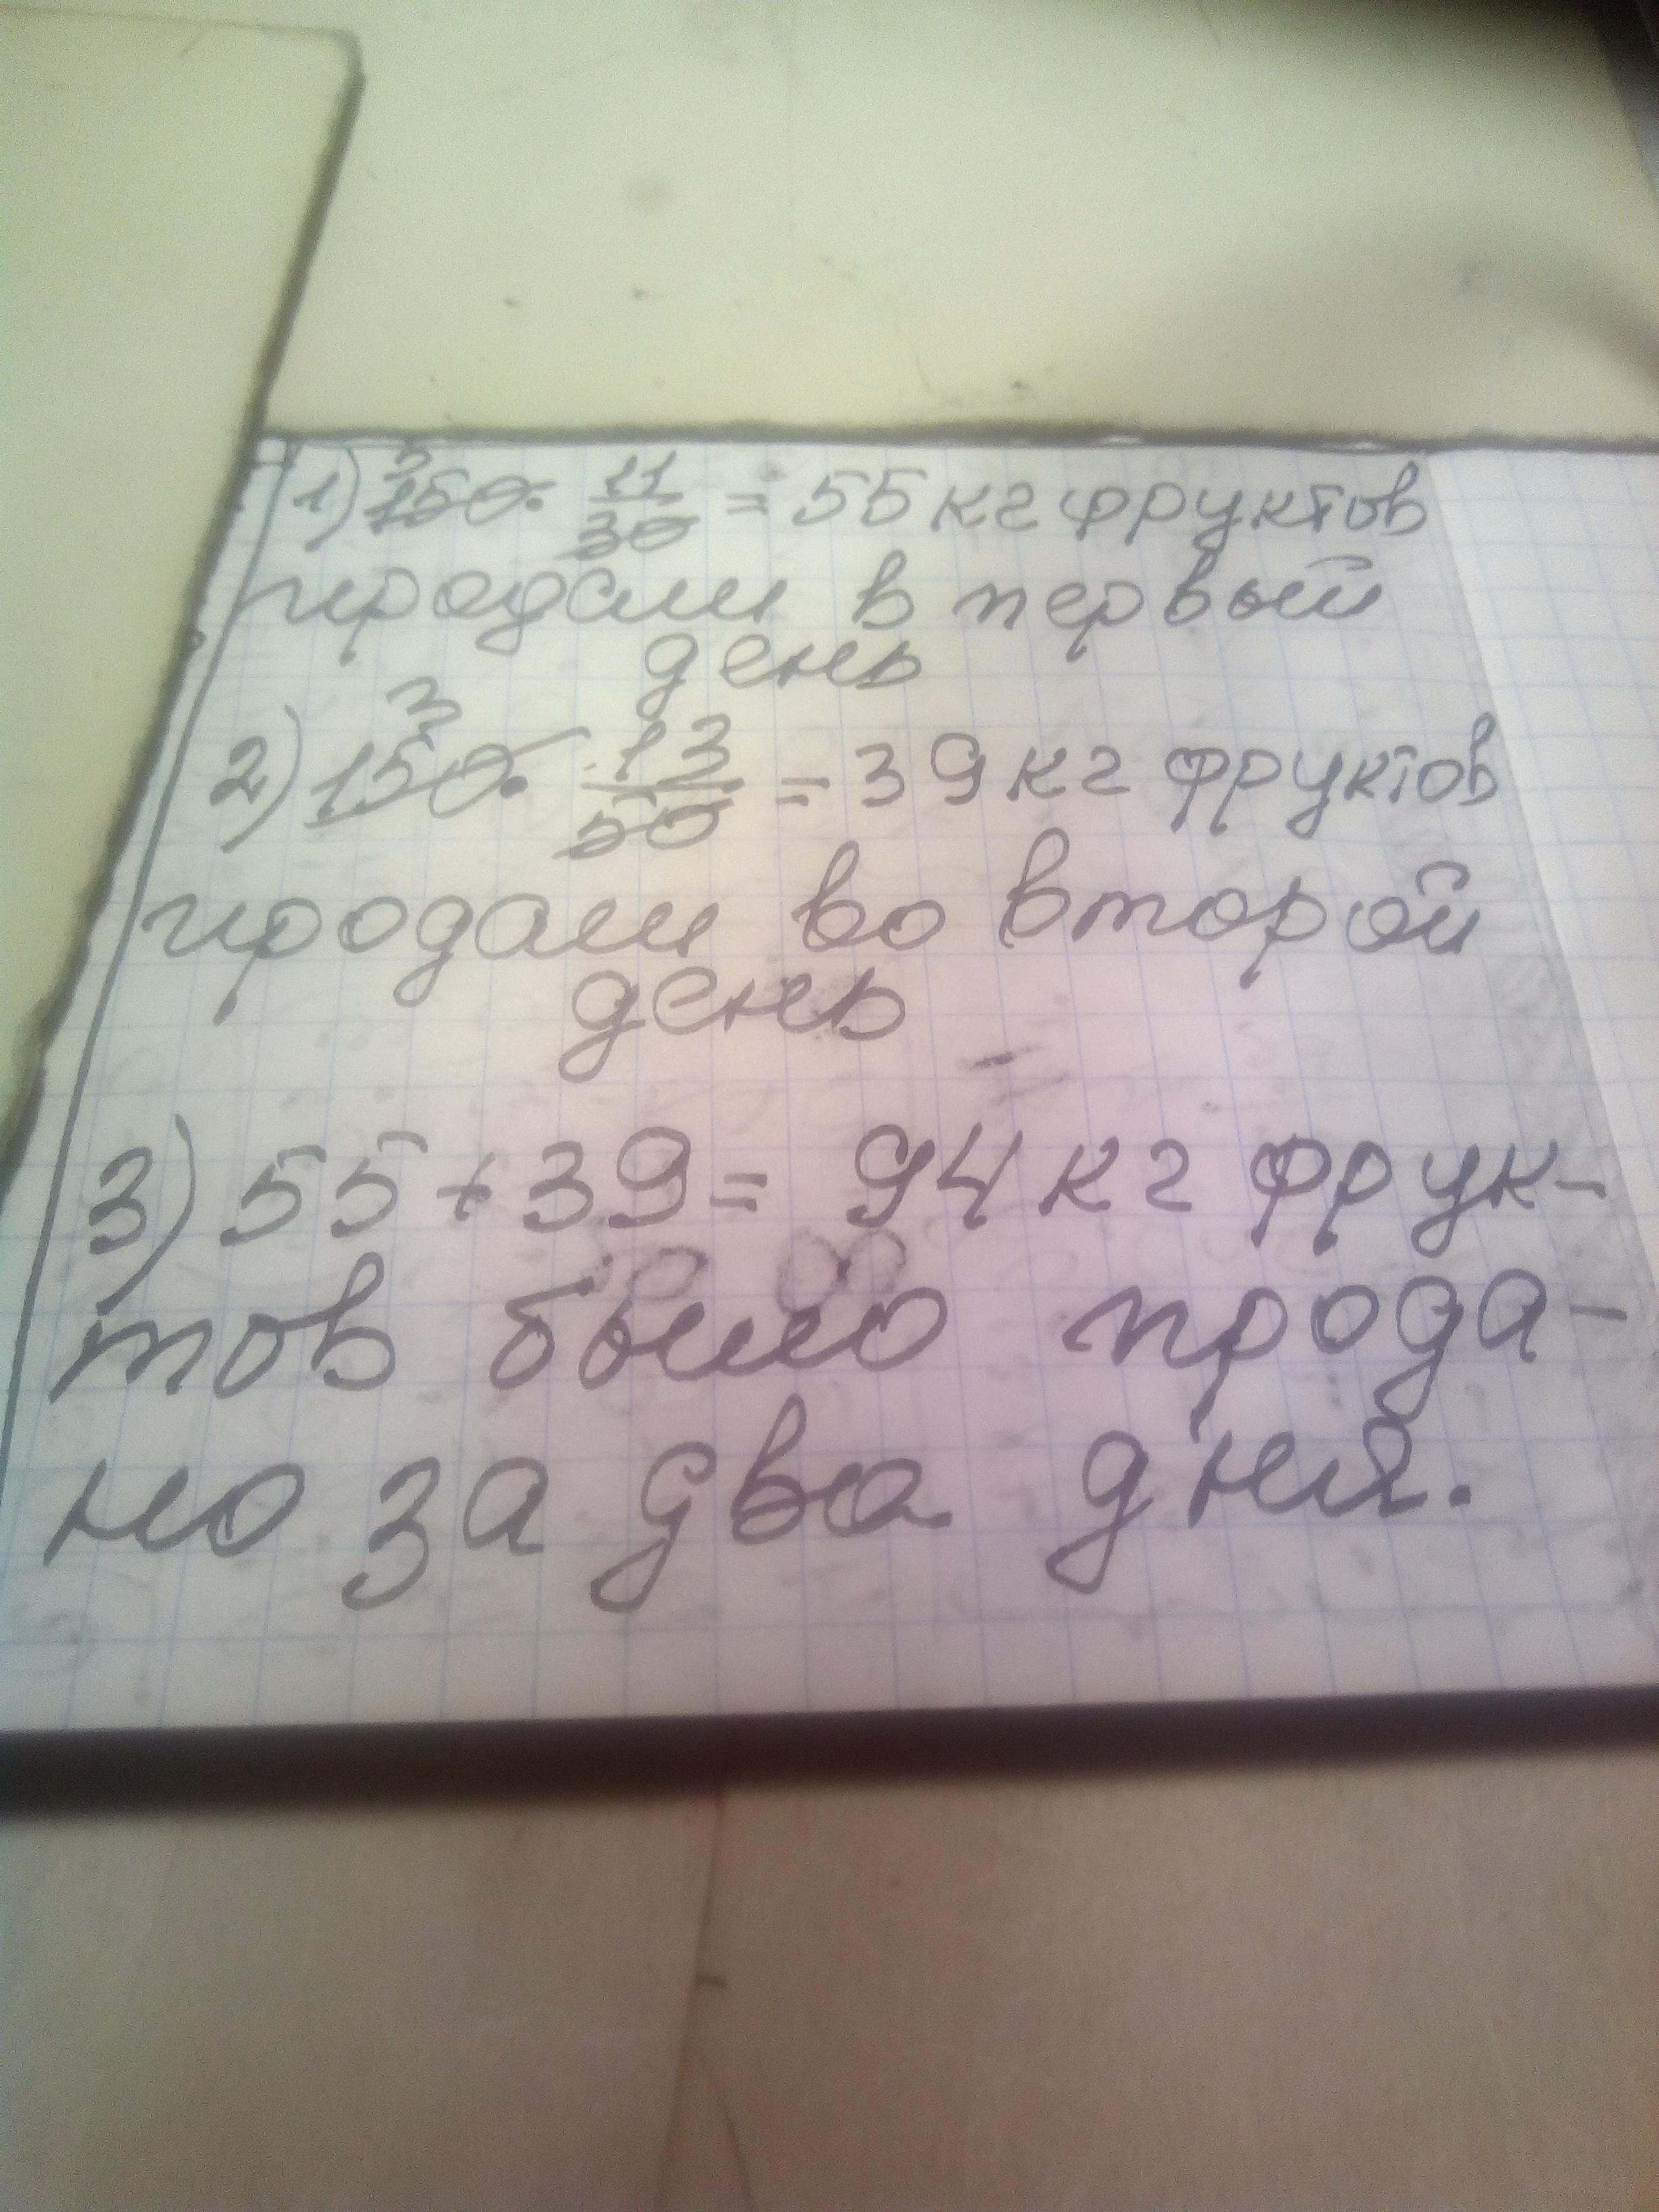 1) 150 · 11/30 = 55 кг фруктов
продали в первый
день
3
2) 150 · 13/50 = 39 кг фруктов
продали во второй
день
3) 55 + 39 = 94 кг фрук-
тов было прода-
но за два дня.